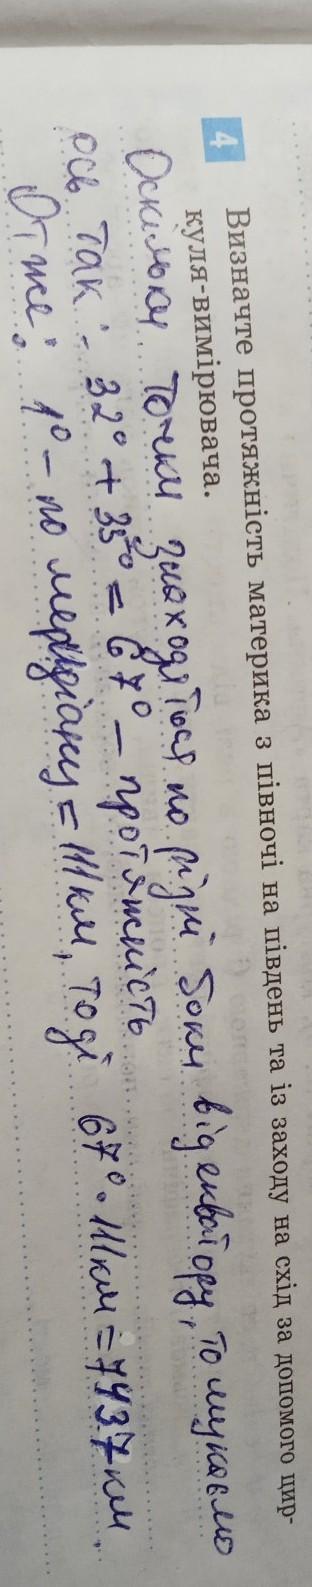 4 Визначте протяжність материка з півночі на південь та із заходу на схід за допомого цир-
куля-вимірювача.
Оскільки точки знаходяться по різні боки від екватору, то шукаємо
ось так: 32° + 35° = 67° – протяжність
Отже: 1° – по меридіану = 111 км, тоді 67° · 111 км = 7437 км.